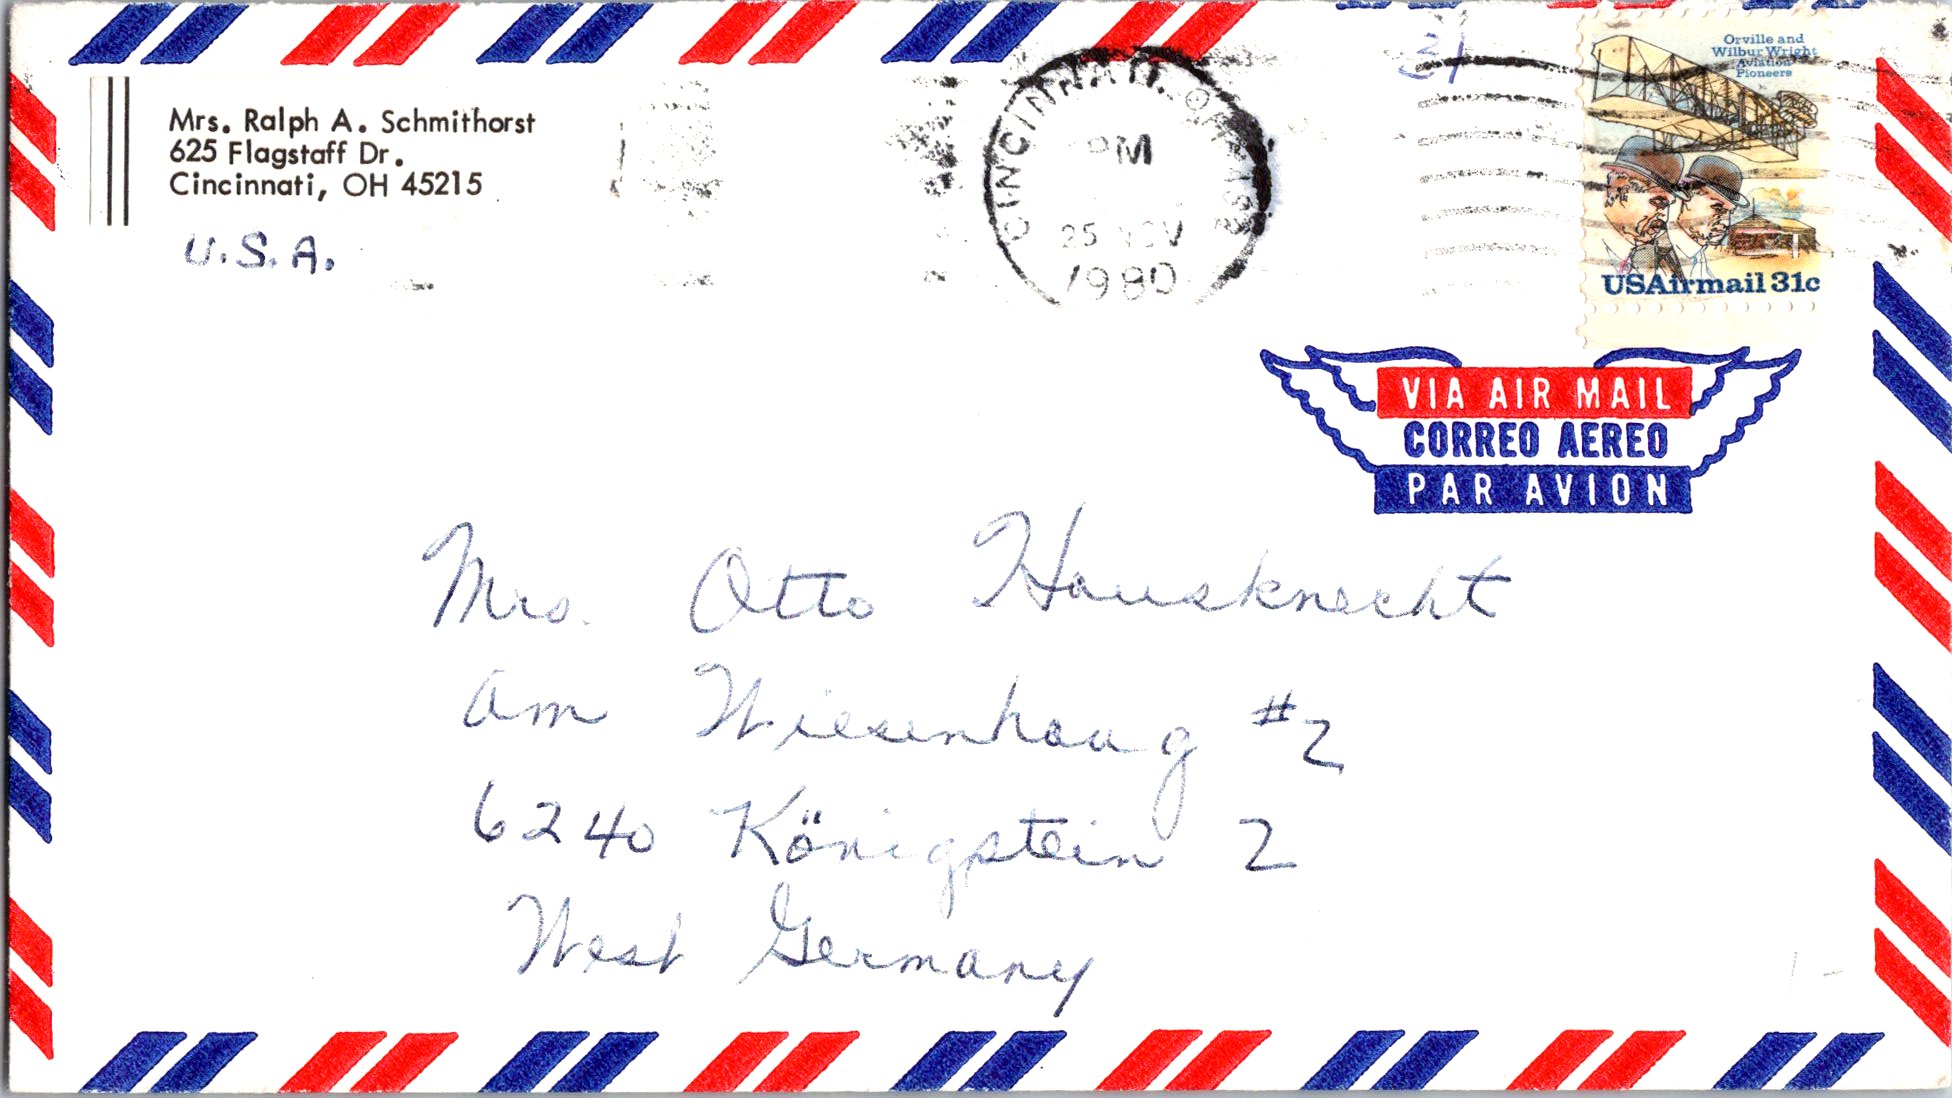 Mrs. Ralph A. Schmithorst
625 Flagstaff Dr.
Cincinnati, OH 45215
U.S.A.
CINCINNATI, OH 452
PM
25 NOV
1980
31
Orville and
Wilbur Wright
Aviation
Pioneers
USAirmail 31c
VIA AIR MAIL
CORREO AEREO
PAR AVION
Mrs. Otto Hausknecht
am Wiesenhaug #2
6240 Königstein 2
West Germany